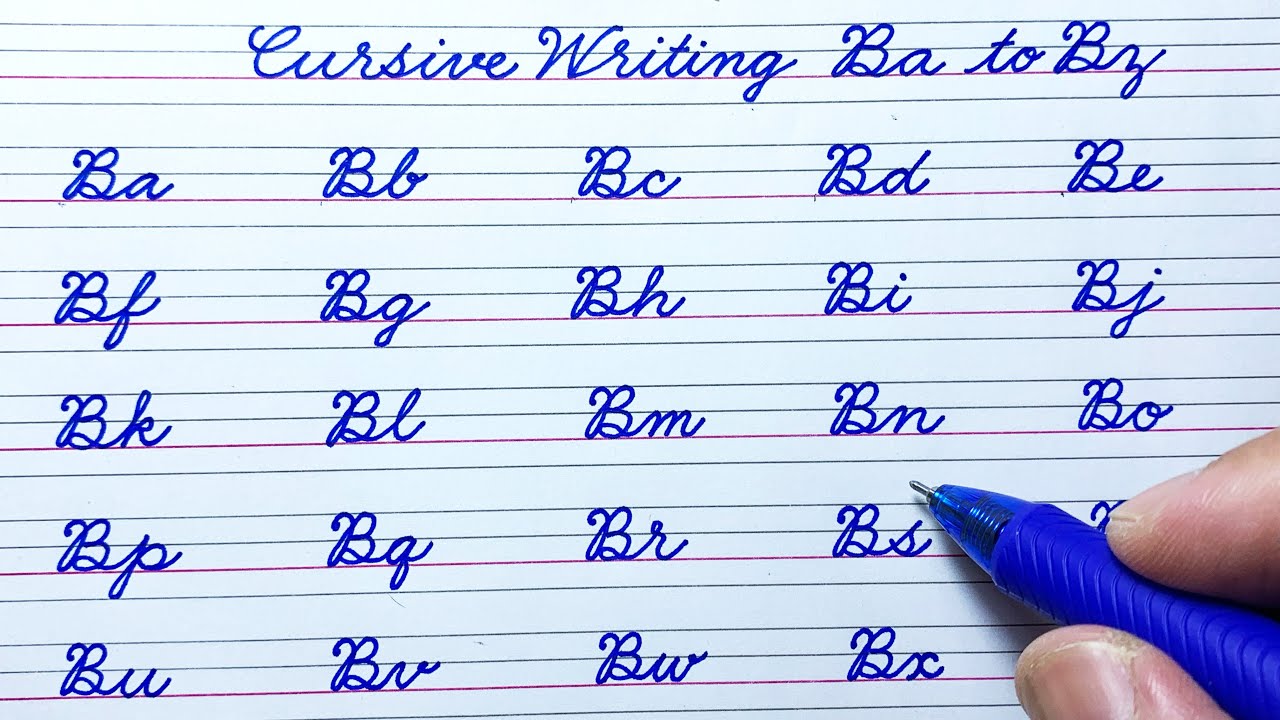 Cursive Writing Ba to Bz
Ba Bb Bc Bd Be
Bf Bg Bh Bi Bj
Bk Bl Bm Bn Bo
Bp Bq Br Bs
Bu Bv Bw Bx